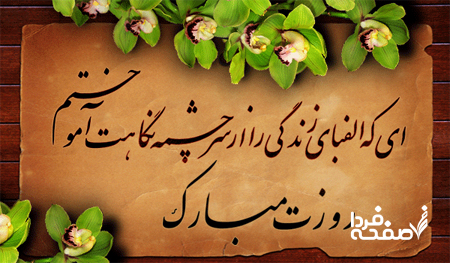 ای که الفبای زندگی را از سرچشمه نگاهت آموختم
روزت مبارک
صفحه فردا